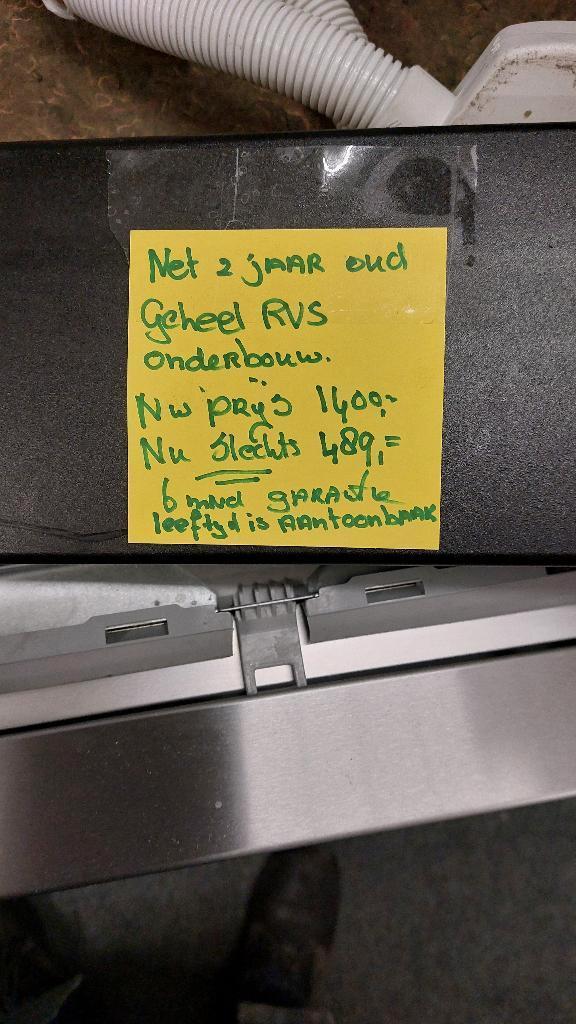 Net 2 jAAR oud
Geheel RVS
onderbouw.
Nw prijs 1400,-
Nu slechts 489,=
6 mnd gARAntie
leeftijd is AAntoonbAAR